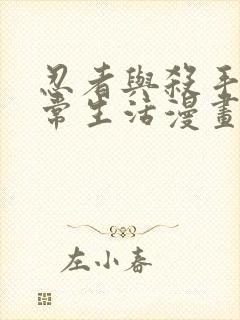 忍者與殺手
常生活漫畫
左小春